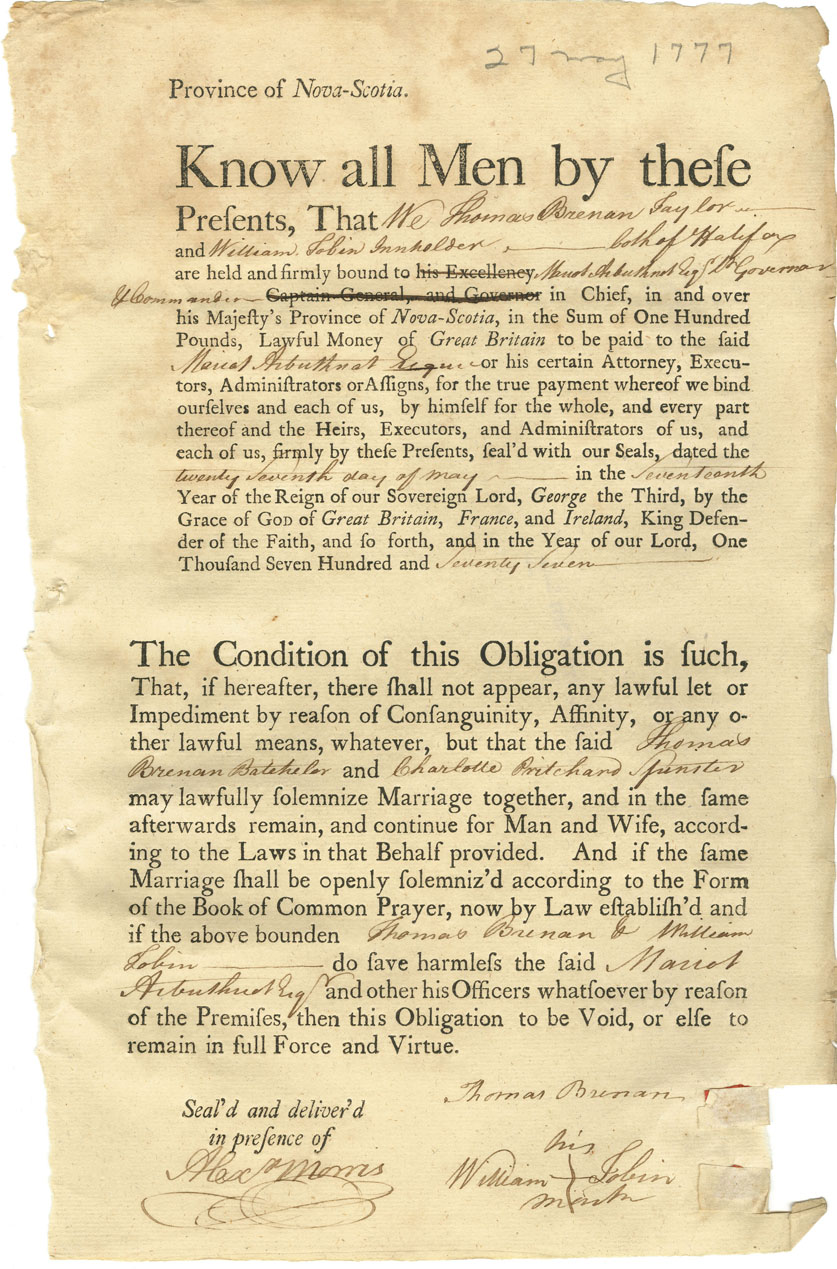 27 may 1777
Province of Nova-Scotia.
Know all Men by theſe
Preſents, That We Thomas Brenan Taylor
and William Tobin Innholder both of Halifax
are held and firmly bound to his Excellency Mariot Arbuthnot Esqr. Lt. Governor
& Commander Captain General, and Governor in Chief, in and over
his Majeſty's Province of Nova-Scotia, in the Sum of One Hundred
Pounds, Lawful Money of Great Britain to be paid to the ſaid
Mariot Arbuthnot Esquire or his certain Attorney, Execu-
tors, Adminiſtrators or Aſſigns, for the true payment whereof we bind
ourſelves and each of us, by himſelf for the whole, and every part
thereof and the Heirs, Executors, and Adminiſtrators of us, and
each of us, firmly by theſe Preſents, ſeal'd with our Seals, dated the
twenty Seventh day of may in the Seventeenth
Year of the Reign of our Sovereign Lord, George the Third, by the
Grace of God of Great Britain, France, and Ireland, King Defen-
der of the Faith, and ſo forth, and in the Year of our Lord, One
Thouſand Seven Hundred and Seventy Seven
The Condition of this Obligation is ſuch,
That, if hereafter, there ſhall not appear, any lawful let or
Impediment by reaſon of Conſanguinity, Affinity, or any o-
ther lawful means, whatever, but that the ſaid Thomas
Brenan Batchelor and Charlotte Pritchard Spinster
may lawfully ſolemnize Marriage together, and in the ſame
afterwards remain, and continue for Man and Wife, accord-
ing to the Laws in that Behalf provided. And if the ſame
Marriage ſhall be openly ſolemniz'd according to the Form
of the Book of Common Prayer, now by Law eſtabliſh'd and
if the above bounden Thomas Brenan & William
Tobin do ſave harmleſs the ſaid Mariot
Arbuthnot Esqr. and other his Officers whatſoever by reaſon
of the Premiſes, then this Obligation to be Void, or elſe to
remain in full Force and Virtue.
Seal'd and deliver'd
in preſence of
Alexr Morris
Thomas Brenan
his
William Tobin
mark